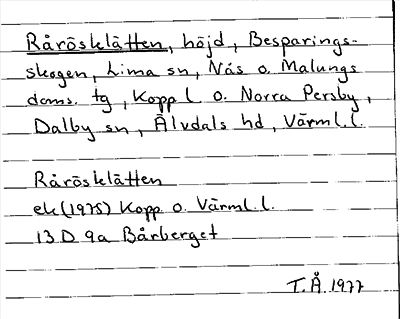 Råröskklätten, höjd, Besparings-
skogen, Lima sn, Nås o. Malungs
doms. tg, Kopp l. o. Norra Persby,
Dalby sn, Älvdals hd, Värml. l.
Råröskklätten
ek (1975) Kopp o. Värml. l.
13 D 9a Bårberget
T.Å. 1977